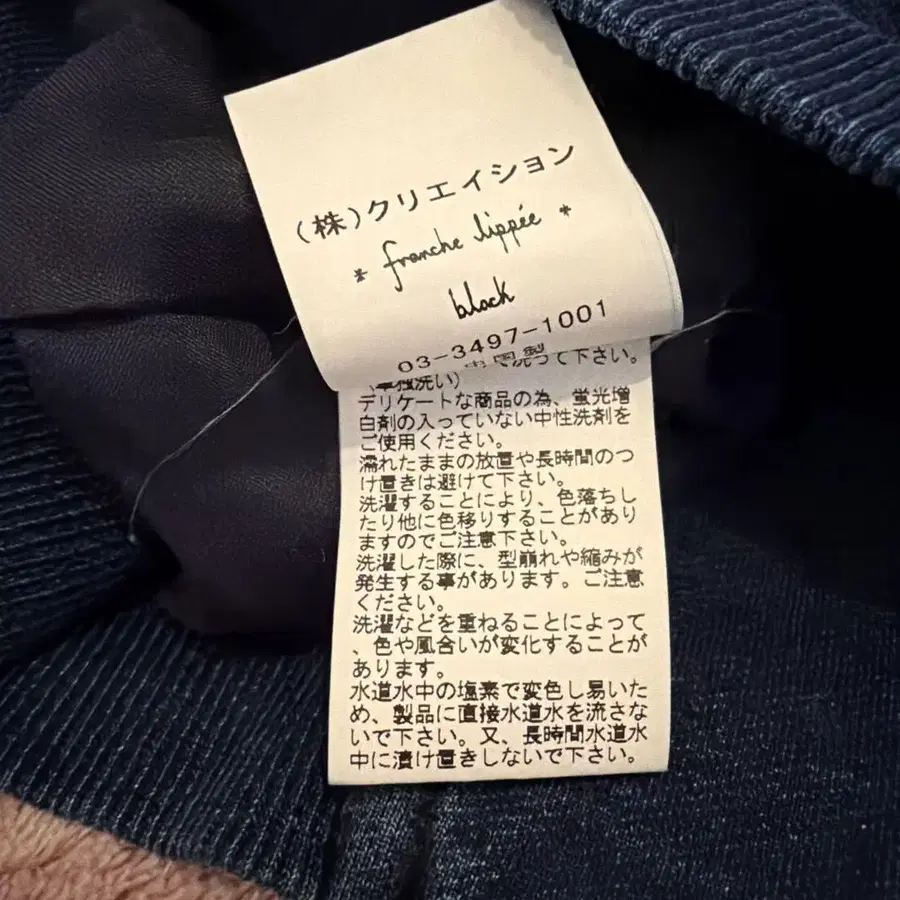 (株)クリエイション
* franche lippée *
black
03-3497-1001
中国製
洗って下さい。
(単独洗い)
デリケートな商品の為、蛍光増
白剤の入っていない中性洗剤を
ご使用ください。
濡れたままの放置や長時間のつ
け置きは避けて下さい。
洗濯することにより、色落ちし
たり他に色移りすることがあり
ますのでご注意下さい。
洗濯した際に、型崩れや縮みが
発生する事があります。ご注意
ください。
洗濯などを重ねることによって
、色や風合いが変化することが
あります。
水道水中の塩素で変色し易いた
め、製品に直接水道水を流さな
いで下さい。又、長時間水道水
中に漬け置きしないで下さい。